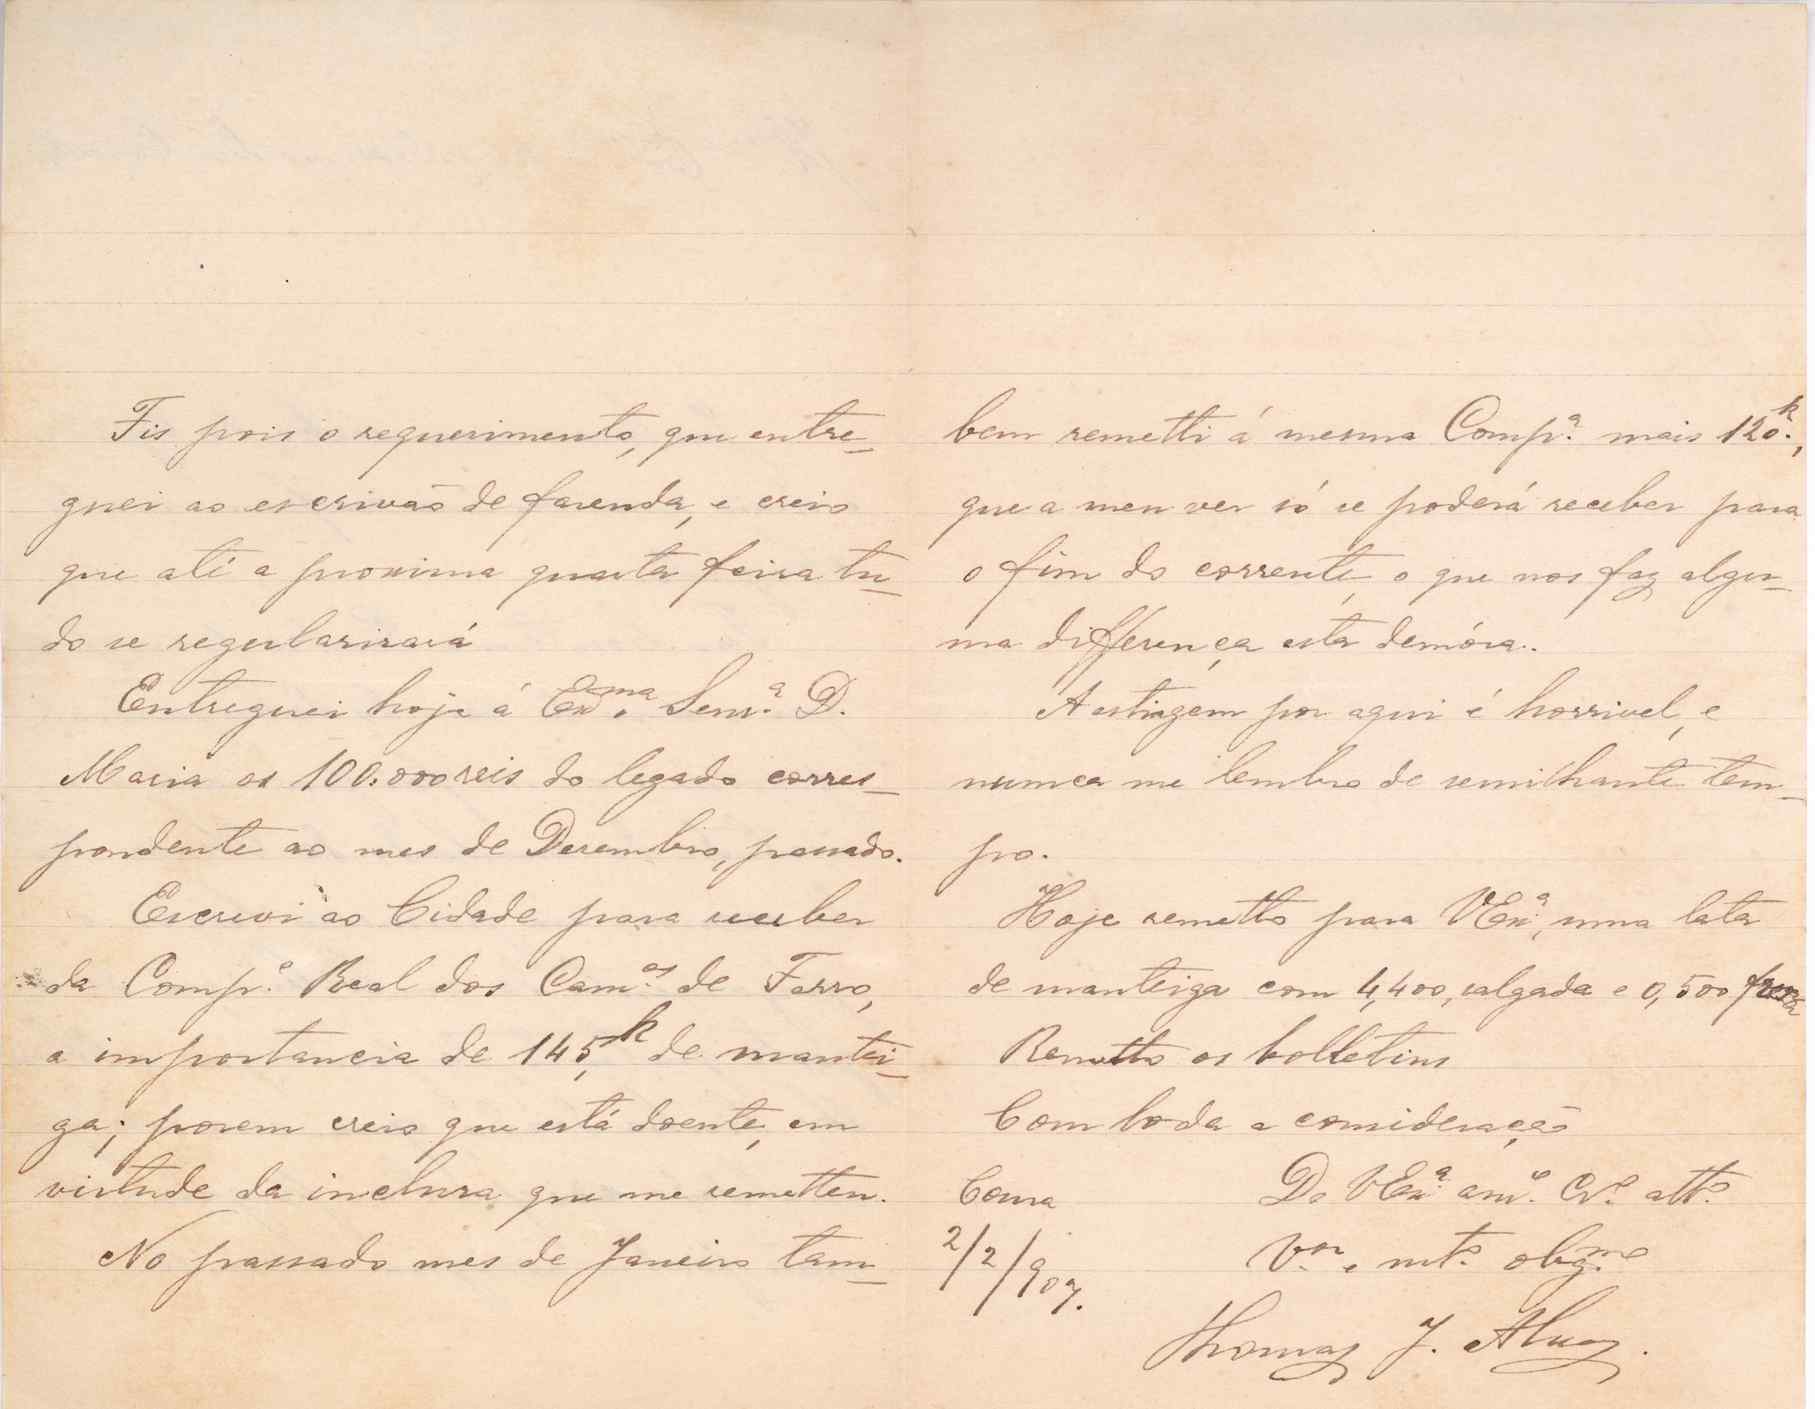 Fis pois o requerimento, que entre-
guei ao escrivão de fazenda, e creio
que até a proxima quarta feira tu-
do se regularisará
Entreguei hoje á Exma. Senrª. D.
Maria os 100.000 reis do legado corres-
pondente ao mes de Desembro, passado.
Escrevi ao Cidade para receber
da Compª. Real dos Camos. de Ferro,
a importancia de 145,k de mantei-
ga; porem creio que está doente, em
virtude da inclusa que me remetteu.
No passado mes de Janeiro tam-
bem remetti á mesma Compª. mais 120k.,
que a meu ver só se poderá receber para
o fim do corrente, o que nos faz algu-
ma differença esta demóra.
A estiagem por aqui é horrivel, e
nunca me lembro de semilhante tem-
po.
Hoje remetto para VExª., uma lata
de manteiga com 4,400, salgada e 0,500 fresca
Remetto os bolletins
Com toda a consideração
Coura De VExª. amº. Crº. attº.
2/2/907. Vor. e mtº. obgmo.
Thomaz J. Alves.